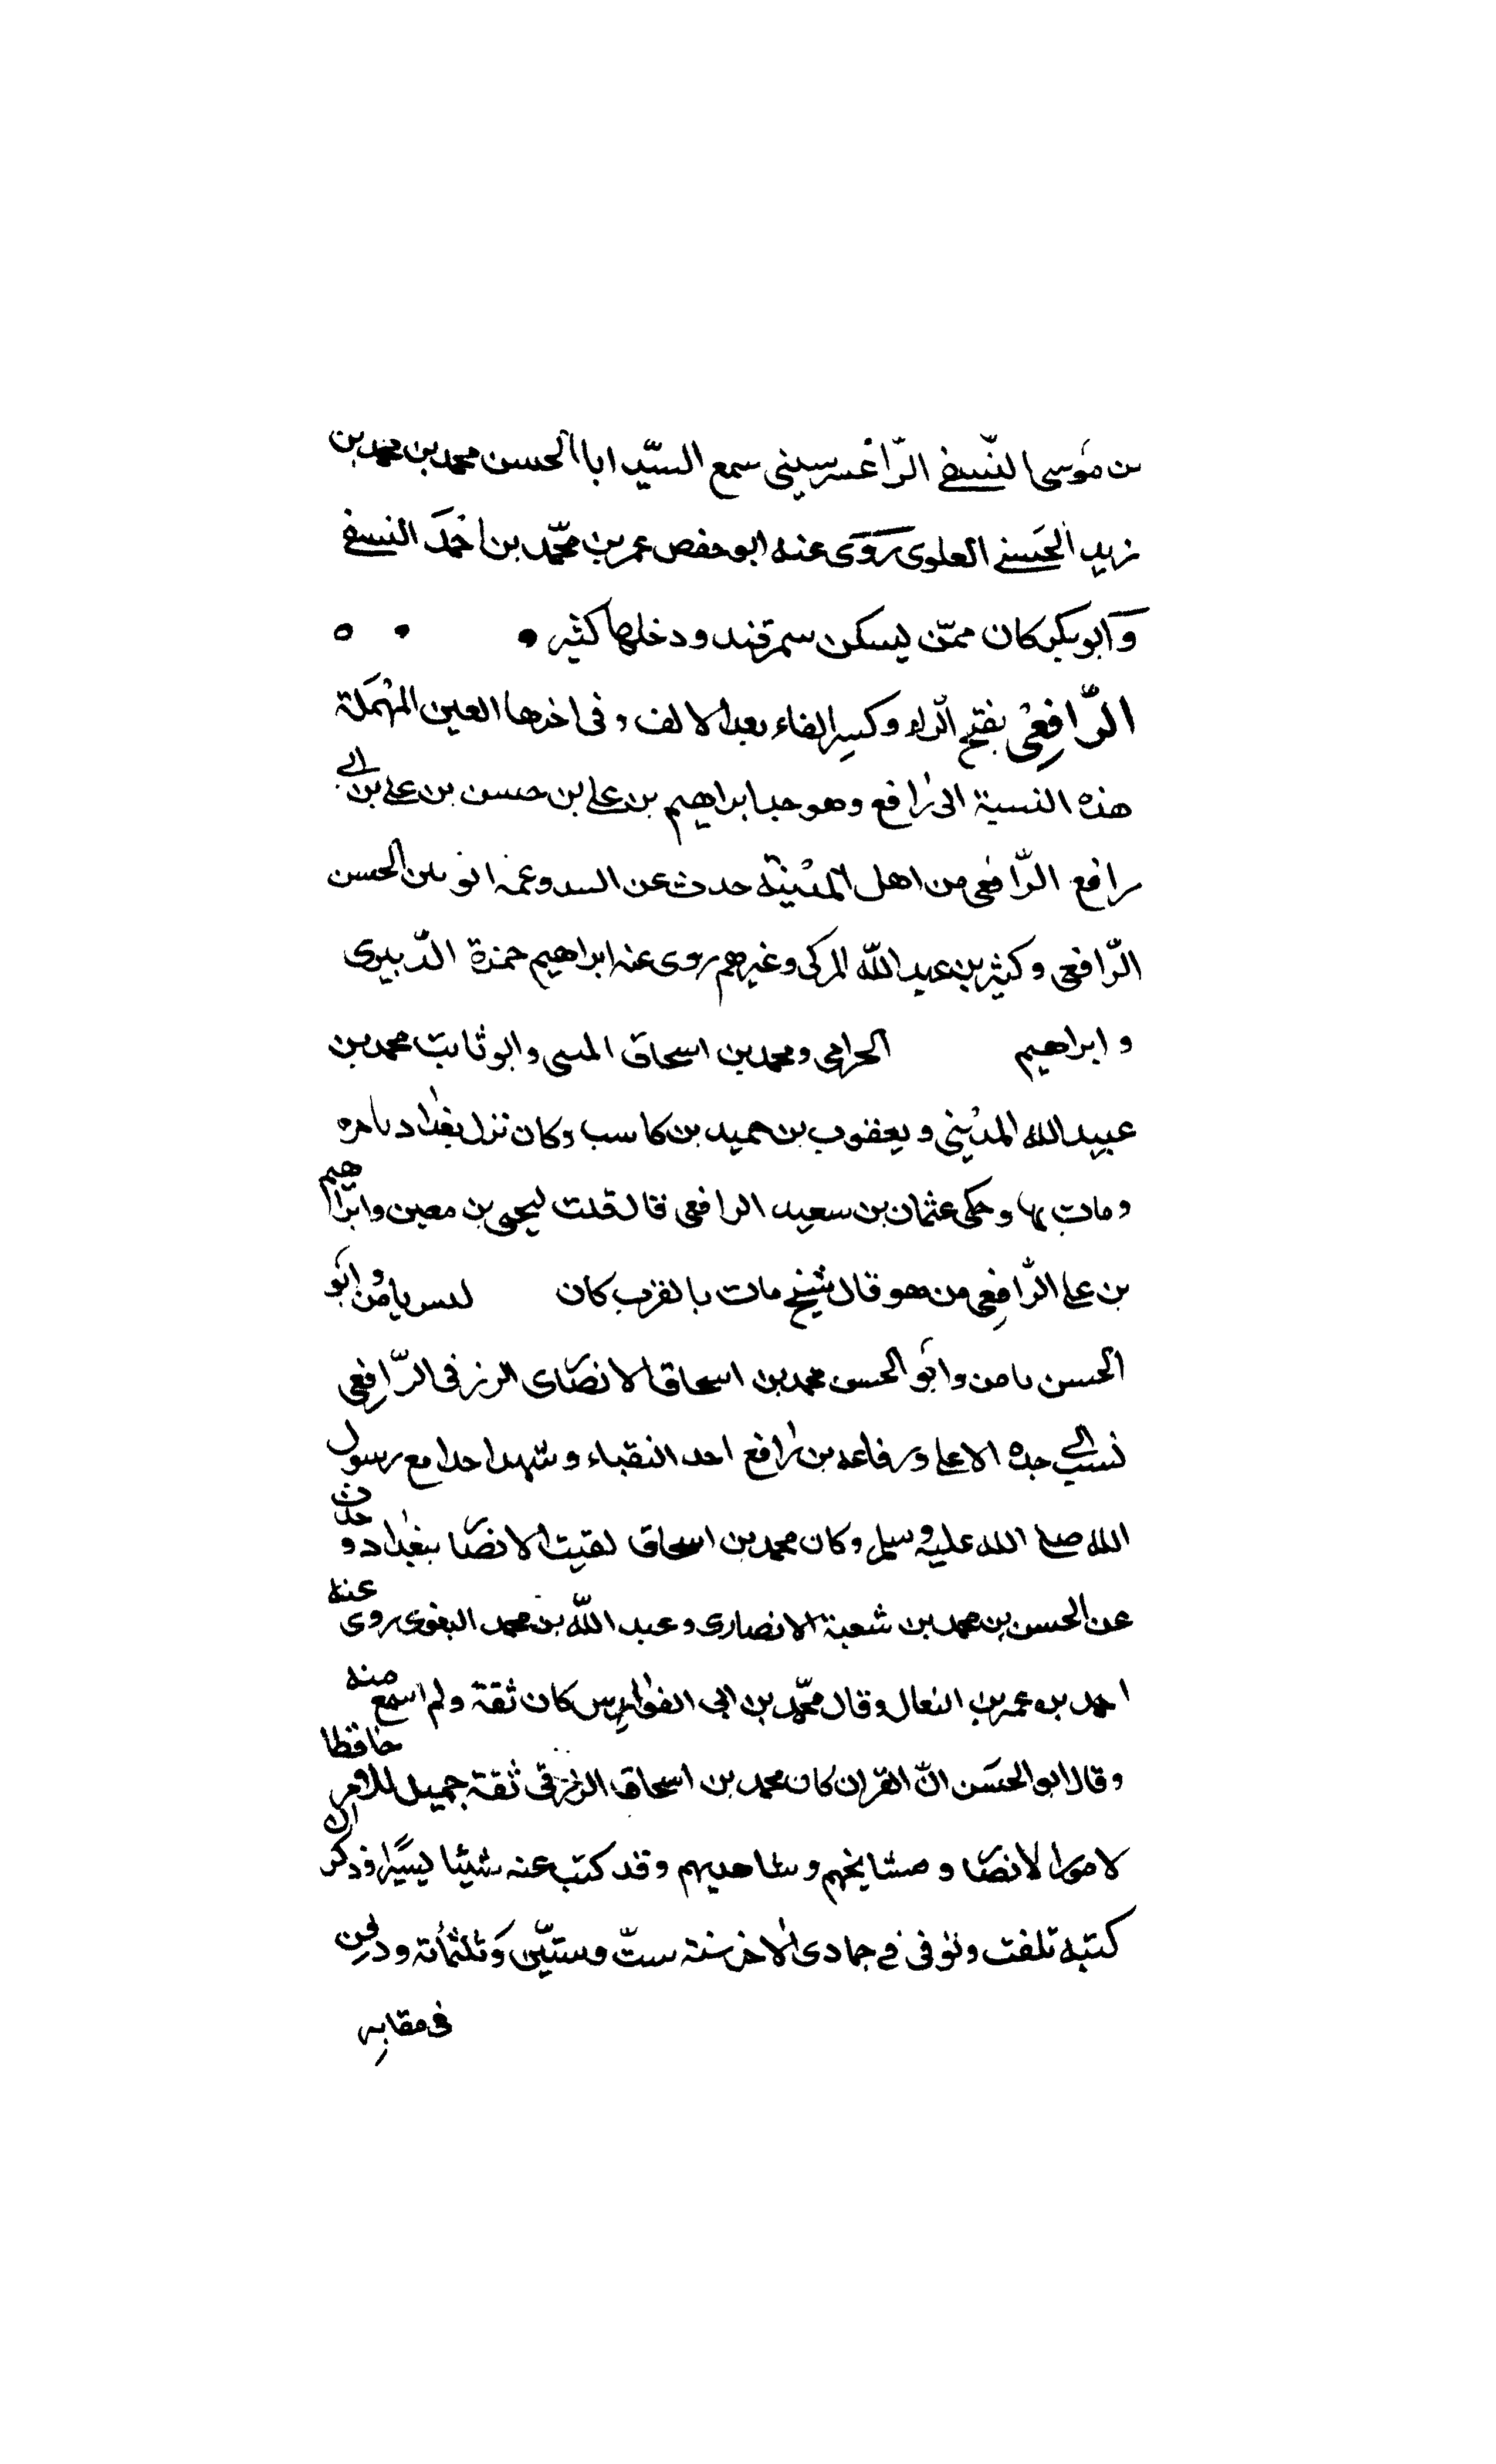 بن موسى النّسفى الرّاغسرسينى سمع السّيّد ابا الحسن محمد بن محمد بن
زيد الحسنى العلوى روى عنه ابو حفص عمر بن محمّد بن احمد النسفى
وابو بكر كان ممّن يسكن سمرقند ودخلها كثير
الرّافعى بفتح الراء وكسر الفاء بعد الالف وفى اخرها العين المهملة
هذه النسبة الى رافع وهو جد ابراهيم بن على بن حسن بن على بن ابى
رافع الرّافعى من اهل المدينة حدث عن ابيه وعمه ايوب بن الحسن
الرّافعى وكثير بن عبد الله المزكى وغيرهم روى عنه ابراهيم حمزة الدّبيرى
و ابراهيم الحرامى ومحمد بن اسحاق المسى وابو ثابت محمد بن
عبيد الله المدينى و يعقوب بن حميد بن كاسب وكان نزل بغداد باخره
ومات بها وحكى عثمان بن سعيد الرافعى قال قلت ليحيى بن معين وابراهيم
بن على الرّافعى من هو قال شيخ مات بالقرب كان ليس بامن وابو
الحسن بامن وابو الحسن محمد بن اسحاق الانصارى الزرقى الرّافعى
نسب الى جده الاعلى ورفاعه بن رافع احد النقباء وشهد احدا مع رسول
الله صلى الله عليه وسلم وكان محمد بن اسحاق نقيب الانصا ببغداد وحدث
عن الحسن بن محمد بن شعبة الانصارى وعبد الله بن محمد البغوى روى عنه
احمد بن عمر بن النعال وقال محمّد بن ابى الفوارس كان ثقة ولم اسمع منه
وقال ابو الحسن انّ القران كان محمد بن اسحاق الزرقى ثقة جميل الامر حافظا
لامور الانصا و مشايخهم و مشاهديهم وقد كتب عنه شيئا يسيرا وذكر ان
كتبه تلفت وتوفى فى جمادى الاخر سنة ستّ وستّين وثلثمائة ودفن
فى مقابر